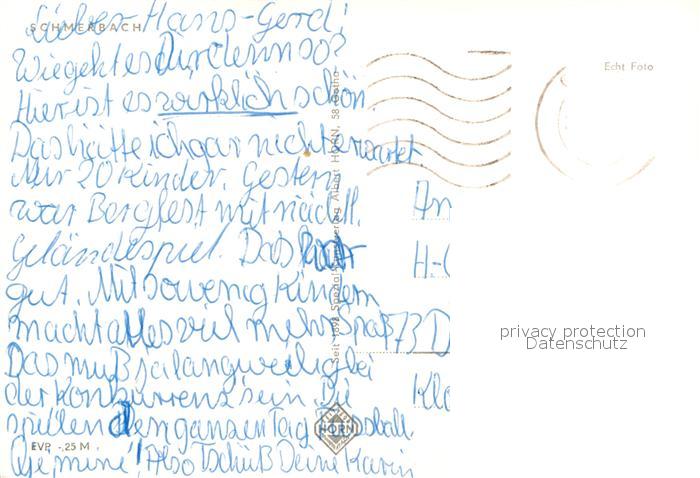 SCHMERBACH
Lieber Hans-Gerd!
Wie geht es Dir denn so?
Hier ist es wirklich schön
Das hätte ich gar nicht erwartet.
Nur 20 Kinder. Gestern
war Bergfest mit nächtl.
Geländespiel. Das war
gut. Mit so wenig Kindern
macht alles viel mehr Spaß
Das muß ja langweilig bei
der Konkurrenz sein. Die
spielen den ganzen Tag Fussball.
Oje mine! Also Tschüß Deine Karin
EVP -,25 M
Seit 1898 Spezialverlag Albert HORN, 58 Gotha
HORN
Echt Foto
An
H-
73 D
Kl
privacy protection
Datenschutz